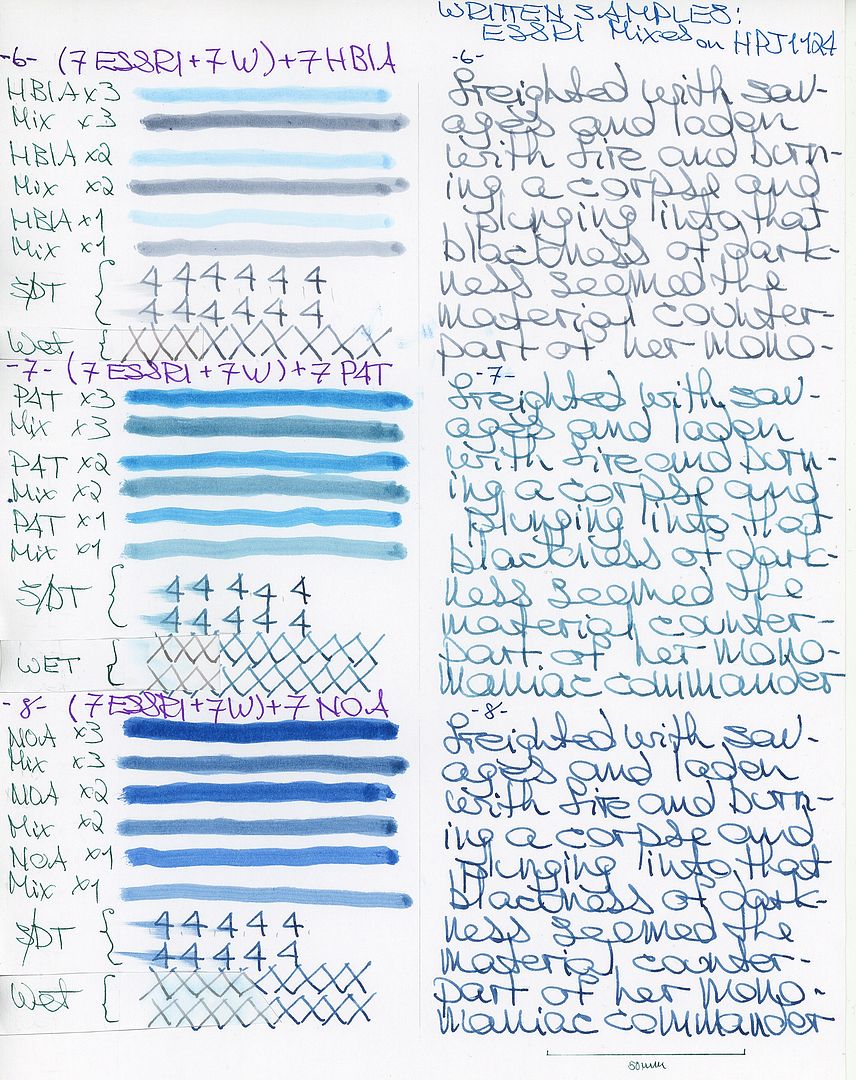 WRITTEN SAMPLES:
ESSRI Mixes on HPJ1124
-6- (7 ESSRI + 7 W) + 7 HBIA
HBIA x3
Mix x3
HBIA x2
Mix x2
HBIA x1
Mix x1
S/DT { 4 4 4 4 4 4
4 4 4 4 4 4
Wet { XXXXXXXXXXX
-7- (7 ESSRI + 7 W) + 7 P4T
P4T x3
Mix x3
P4T x2
Mix x2
P4T x1
Mix x1
S/DT { 4 4 4 4 4
4 4 4 4 4
WET {
-8- (7 ESSRI + 7 W) + 7 NOA
NOA x3
Mix x3
NOA x2
Mix x2
NOA x1
Mix x1
S/DT { 4 4 4 4 4
4 4 4 4 4
Wet {
-6-
freighted with sav-
ages and laden
with fire and burn-
ing a corpse and
plunging into that
blackness of dark-
ness seemed the
material counter-
part of her mono-
-7-
freighted with sav-
ages and laden
with fire and burn-
ing a corpse and
plunging into that
blackness of dark-
ness seemed the
material counter-
part of her mono-
maniac commander
-8-
freighted with sav-
ages and laden
with fire and burn-
ing a corpse and
plunging into that
blackness of dark-
ness seemed the
material counter-
part of her mono-
maniac commander
50mm